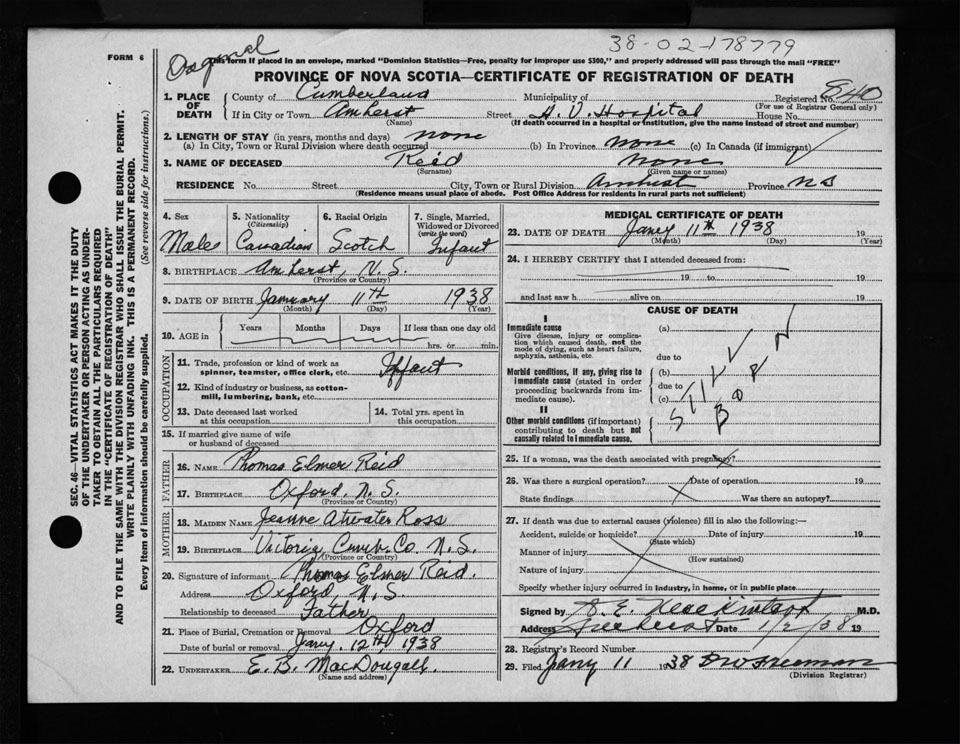 38-02-178779
Original
FORM 6
This form if placed in an envelope, marked "Dominion Statistics—Free, penalty for improper use $300," and properly addressed will pass through the mail "FREE"
PROVINCE OF NOVA SCOTIA—CERTIFICATE OF REGISTRATION OF DEATH
1. PLACE OF DEATH { County of Cumberland Municipality of Registered No. 840
(For use of Registrar General only)
If in City or Town Amherst Street H. V. Hospital House No.
(Name) (If death occurred in a hospital or institution, give the name instead of street and number)
2. LENGTH OF STAY (in years, months and days)
(a) In City, Town or Rural Division where death occurred none (b) In Province none (c) In Canada (if immigrant)
3. NAME OF DECEASED Reid none
(Surname) (Given name or names)
RESIDENCE No. Street City, Town or Rural Division Amherst Province NS
(Residence means usual place of abode. Post Office Address for residents in rural parts not sufficient)
4. Sex 5. Nationality 6. Racial Origin 7. Single, Married,
(Citizenship) Widowed or Divorced
(write the word)
Male Canadian Scotch Infant
8. BIRTHPLACE Amherst, N. S.
(Province or Country)
9. DATE OF BIRTH January 11th 1938
(Month) (Day) (Year)
10. AGE in { Years Months Days If less than one day old
hrs. or min.
OCCUPATION
11. Trade, profession or kind of work as
spinner, teamster, office clerk, etc. Iffant
12. Kind of industry or business, as cotton-
mill, lumbering, bank, etc.
13. Date deceased last worked
at this occupation
14. Total yrs. spent in
this occupation
15. If married give name of wife
or husband of deceased
FATHER
16. NAME Thomas Elmer Reid
17. BIRTHPLACE Oxford, N. S.
(Province or Country)
MOTHER
18. MAIDEN NAME Jeanne Atwater Ross
19. BIRTHPLACE Victoria Cumb. Co. N. S.
(Province or Country)
20. Signature of informant Thomas Elmer Reid.
Address Oxford, N. S.
Relationship to deceased Father
21. Place of Burial, Cremation or Removal Oxford
Date of burial or removal Jany. 12th, 1938
22. UNDERTAKER E. B. MacDougall.
(Name and address)
MEDICAL CERTIFICATE OF DEATH
23. DATE OF DEATH Jany 11th 1938 19
(Month) (Day) (Year)
24. I HEREBY CERTIFY that I attended deceased from:
19 to 19
and last saw h alive on 19
CAUSE OF DEATH
I
Immediate cause
Give disease, injury or complica-
tion which caused death, not the
mode of dying, such as heart failure,
asphyxia, asthenia, etc.
Morbid conditions, if any, giving rise to
immediate cause (stated in order
proceeding backwards from im-
mediate cause).
II
Other morbid conditions (if important)
contributing to death but not
causally related to immediate cause.
(a)
due to
(b)
due to
(c)
STILL
BORN
25. If a woman, was the death associated with pregnancy?
26. Was there a surgical operation? Date of operation 19
State findings Was there an autopsy?
27. If death was due to external causes (violence) fill in also the following:—
Accident, suicide or homicide? Date of injury 19
(State which)
Manner of injury
(How sustained)
Nature of injury
Specify whether injury occurred in industry, in home, or in public place
Signed by M.D.
Address Date 1/2/38 19
28. Registrar's Record Number
29. Filed Jany 11 1938 Freeman
(Division Registrar)
SEC. 46—VITAL STATISTICS ACT MAKES IT THE DUTY
OF THE UNDERTAKER OR PERSON ACTING AS UNDER-
TAKER TO OBTAIN ALL THE PARTICULARS REQUIRED
IN THE "CERTIFICATE OF REGISTRATION OF DEATH"
AND TO FILE THE SAME WITH THE DIVISION REGISTRAR WHO SHALL ISSUE THE BURIAL PERMIT.
WRITE PLAINLY WITH UNFADING INK. THIS IS A PERMANENT RECORD.
Every item of information should be carefully supplied. (See reverse side for instructions.)